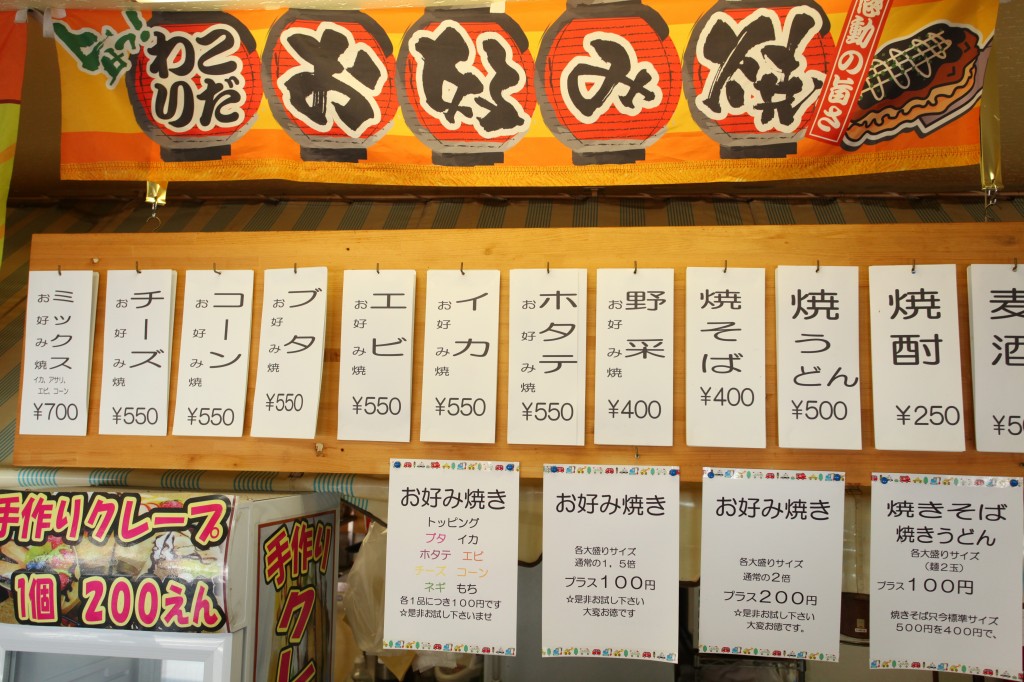 こだわり
お好み焼
感動の旨さ
ミックス
お好み焼
イカ、アサリ、
エビ、コーン
¥700
チーズ
お好み焼
¥550
コーン
お好み焼
¥550
ブタ
お好み焼
¥550
エビ
お好み焼
¥550
イカ
お好み焼
¥550
ホタテ
お好み焼
¥550
野菜
お好み焼
¥400
焼そば
¥400
焼うどん
¥500
焼酎
¥250
麦酒
お好み焼き
トッピング
ブタ イカ
ホタテ エビ
チーズ コーン
ネギ もち
各1品につき100円です
☆是非お試し下さいませ
お好み焼き
各大盛りサイズ
通常の1、5倍
プラス100円
☆是非お試し下さい
大変お徳です。
お好み焼き
各大盛りサイズ
通常の2倍
プラス200円
☆是非お試し下さい
大変お徳です。
焼きそば
焼きうどん
各大盛りサイズ
(麺2玉)
プラス100円
焼きそば只今標準サイズ
500円を400円で、
手作りクレープ
1個 200えん
手作り
クレ